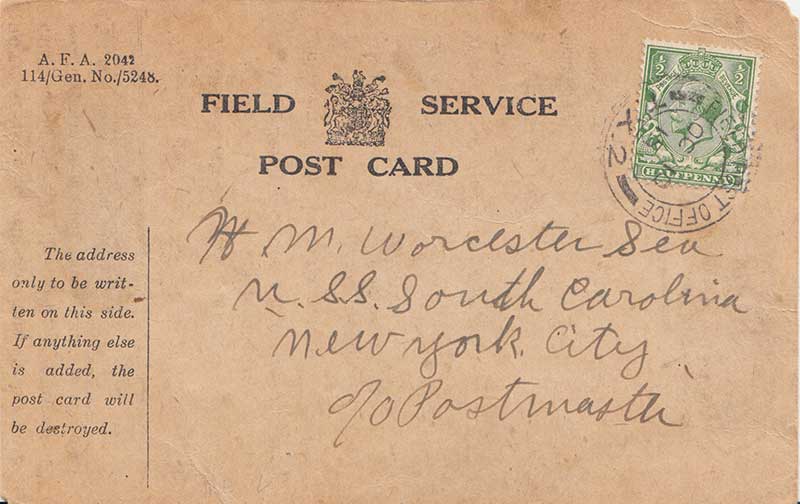 A. F. A. 2042
114/Gen. No./5248.
FIELD SERVICE
POST CARD
½ ½
HALFPENNY
FIELD POST OFFICE
X 2
H. M. Worcester Sea
U.S.S. South Carolina
New York City
c/o Postmaster
The address
only to be writ-
ten on this side.
If anything else
is added, the
post card will
be destroyed.